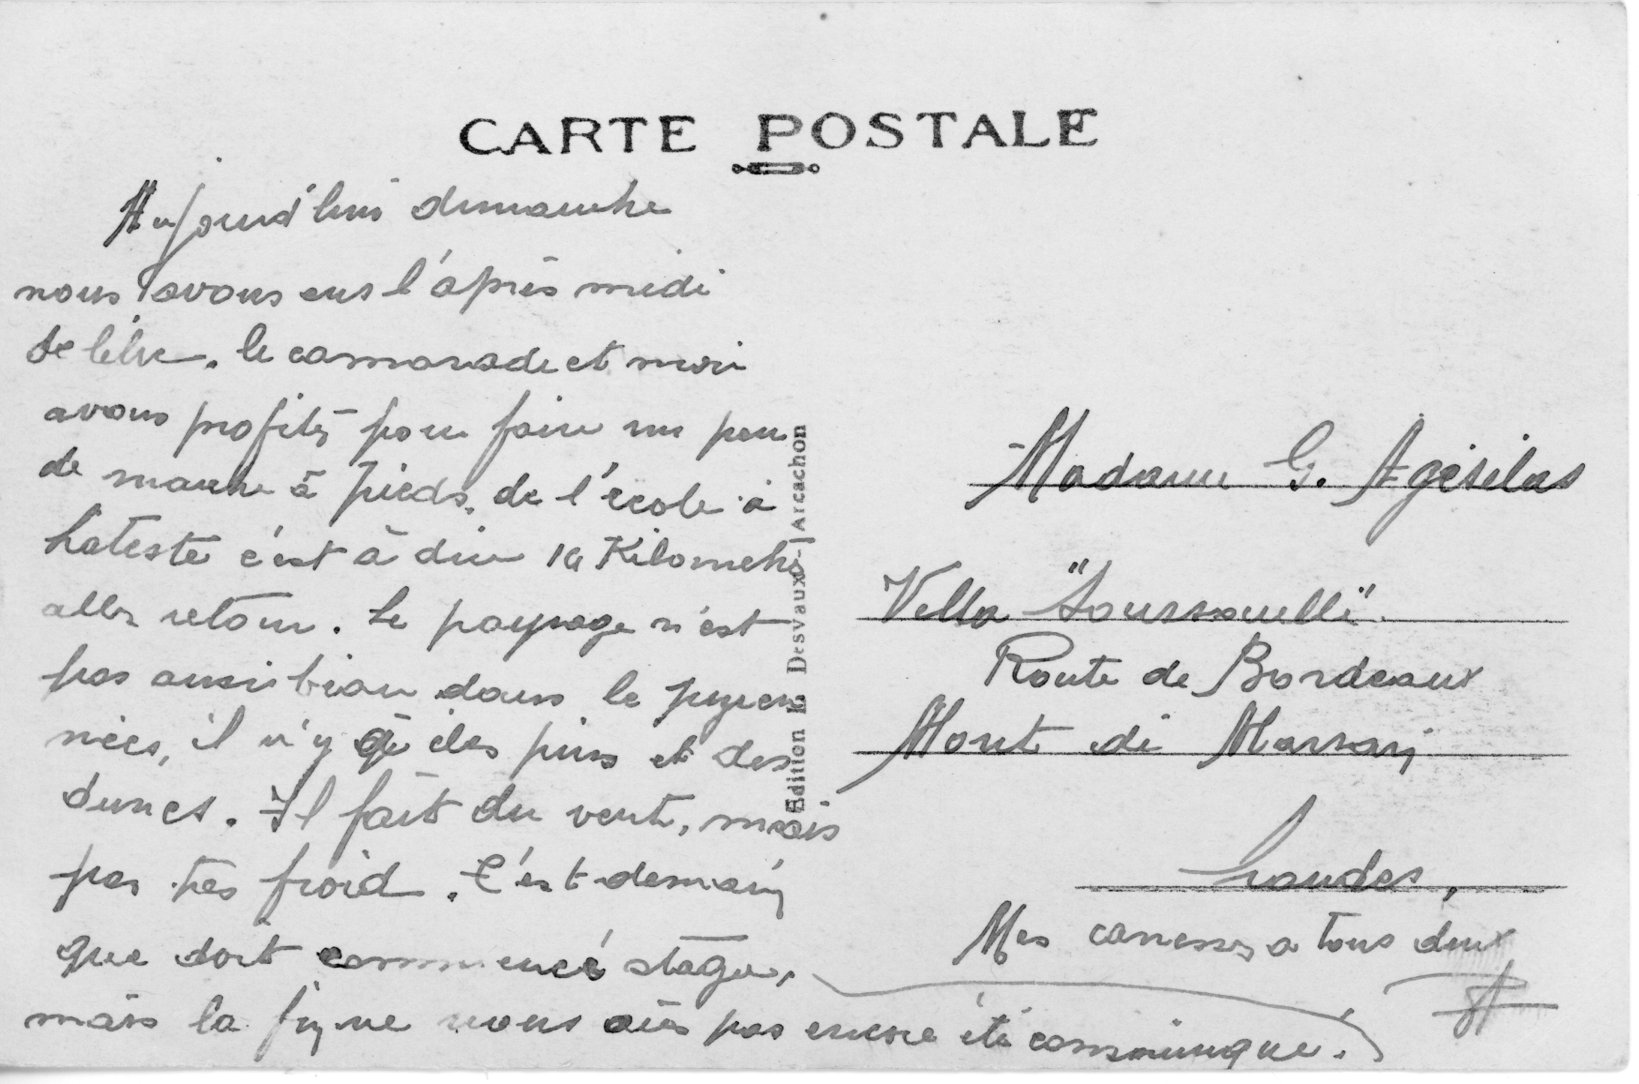 CARTE POSTALE
Aujourd'hui dimanche
nous avons eus l'après midi
de libre. le camarade et moi
avons profités pour faire un peu
de marche à pieds, de l'école à
Lateste c'est à dire 14 Kilometre
aller retour. Le paysage n'est
pas aussi bien dans le pyren
nées, il n'y a des pins et des
dunes. Il fait du vent, mais
pas très froid. C'est demain
que doit commencé stage,
mais la ligne nous a pas encore été communique.
Edition L. Desvaux - Arcachon
Madame G. Agésilas
Villa
Route de Bordeaux
Mont de Marsan
Landes,
Mes caresses a tous deux